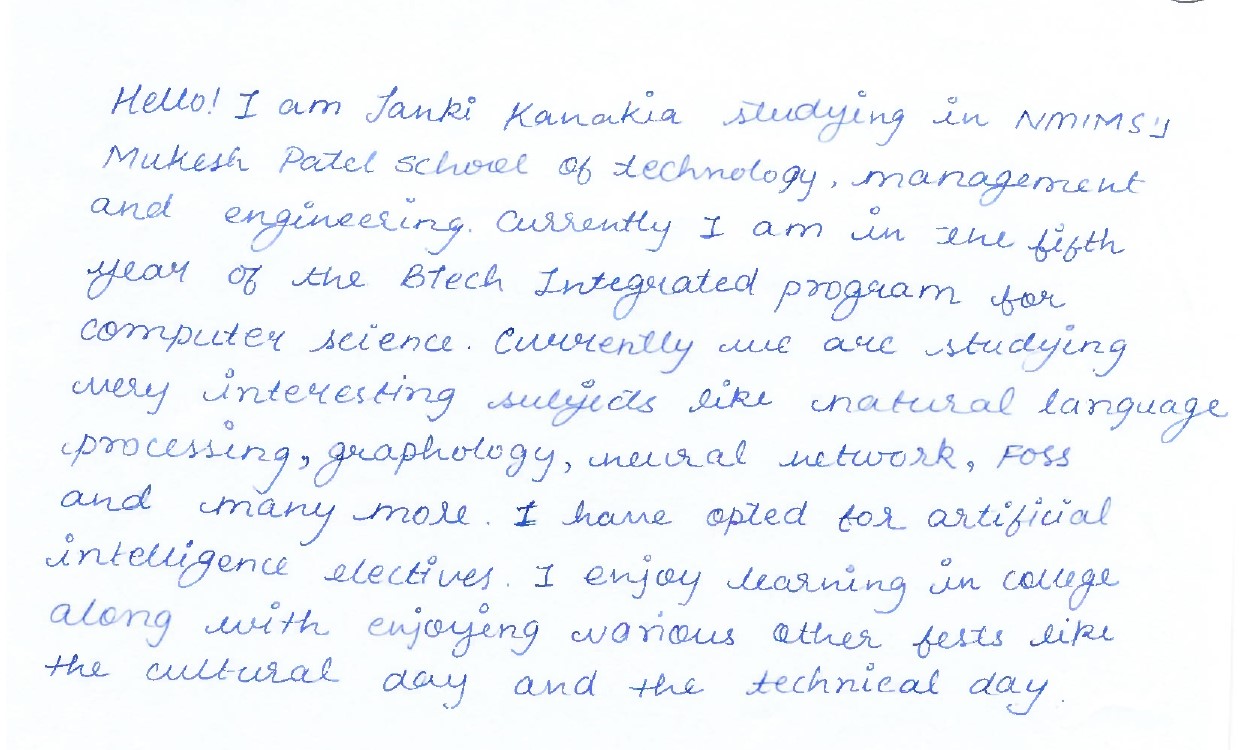 Hello! I am Janki Kanakia studying in NMIMS's
Mukesh Patel school of technology, management
and engineering. Currently I am in the fifth
year of the BTech Integrated program for
computer science. Currently we are studying
very interesting subjects like natural language
processing, graphology, neural network, FOSS
and many more. I have opted for artificial
intelligence electives. I enjoy learning in college
along with enjoying various other fests like
the cultural day and the technical day.